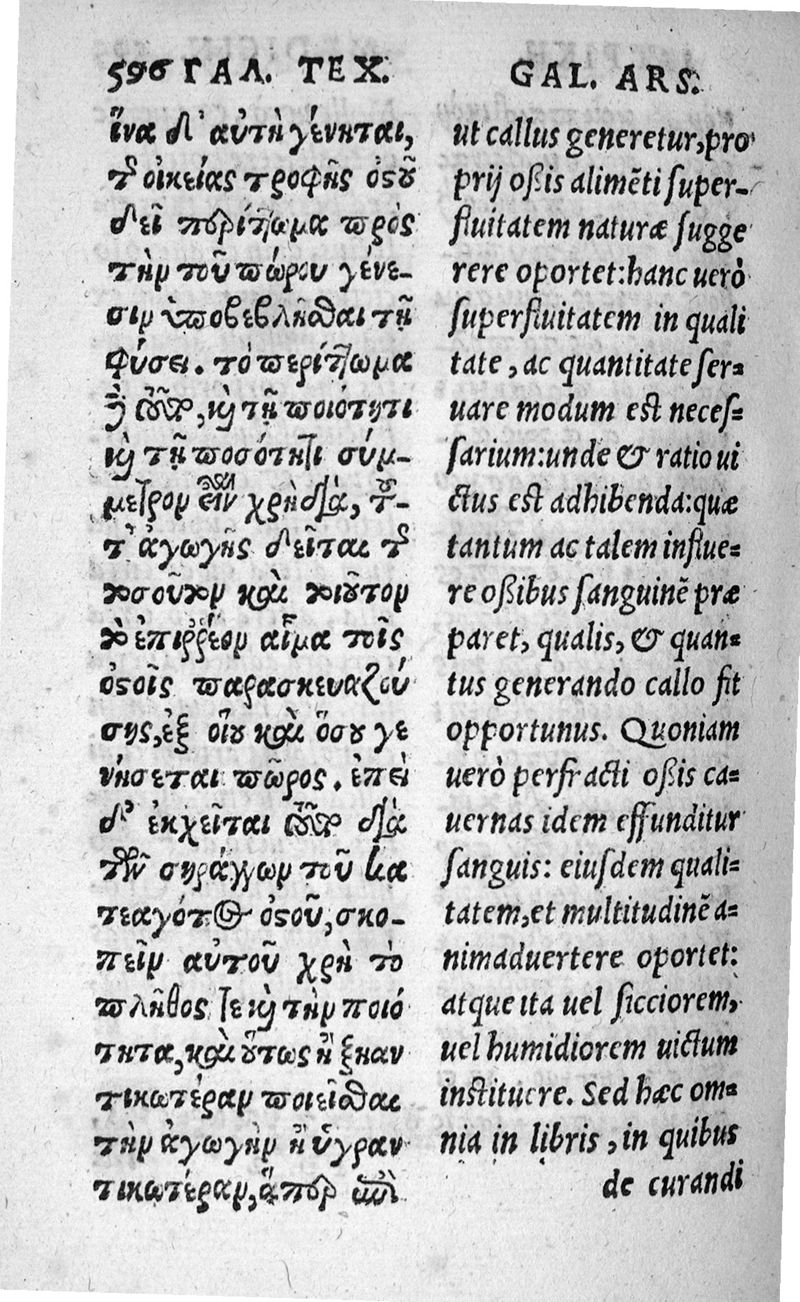 596 ΓΑΛ. ΤΕΧ.
ἵνα δ' αὐτὴ γένηται,
τ οἰκείας τροφῆς ὀστοῦ
δεῖ περίττωμα πρὸς
τὴν τοῦ πώρου γένε-
σιν ὑποβεβλῆσθαι τῇ
φύσει. τὸ περίττωμα
δὲ τοῦτο, καὶ τῇ ποιότητι
καὶ τῇ ποσότητι σύμ-
μετρον εἶναι χρὴ διὰ, τοι-
τ' ἀγωγῆς δεῖται τ
τοσοῦτον καὶ τοιοῦτον
τὸ ἐπιρρέον αἷμα τοῖς
ὀστοῖς παρασκευαζού
σης, ἐξ οἵου καὶ ὅσου γε
νήσεται πῶρος. ἐπεὶ
δ' ἐκχεῖται τοῦτο διὰ
τῶν συράγγων τοῦ κα
τεαγότος ὀστοῦ, σκο-
πεῖν αὐτοῦ χρὴ τὸ
πλῆθός τε καὶ τὴν ποιό
τητα, καὶ οὕτως ἢ ξηραν
τικωτέραν ποιεῖσθαι
τὴν ἀγωγὴν ἢ ὑγραν
τικωτέραν, ἅπερ ἐπὶ
GAL. ARS.
ut callus generetur, pro
prij oßis alimẽti super-
fluitatem naturæ sugge
rere oportet: hanc uerò
superfluitatem in quali
tate, ac quantitate ser-
uare modum est neces-
sarium: unde & ratio ui
ctus est adhibenda: quæ
tantum ac talem influe-
re oßibus sanguinẽ præ
paret, qualis, & quan-
tus generando callo fit
opportunus. Quoniam
uerò perfracti oßis ca-
uernas idem effunditur
sanguis: eiusdem quali-
tatem, et multitudinẽ a-
nimaduertere oportet:
atque ita uel sicciorem,
uel humidiorem uictum
instituere. Sed hæc om-
nia in libris, in quibus
de curandi